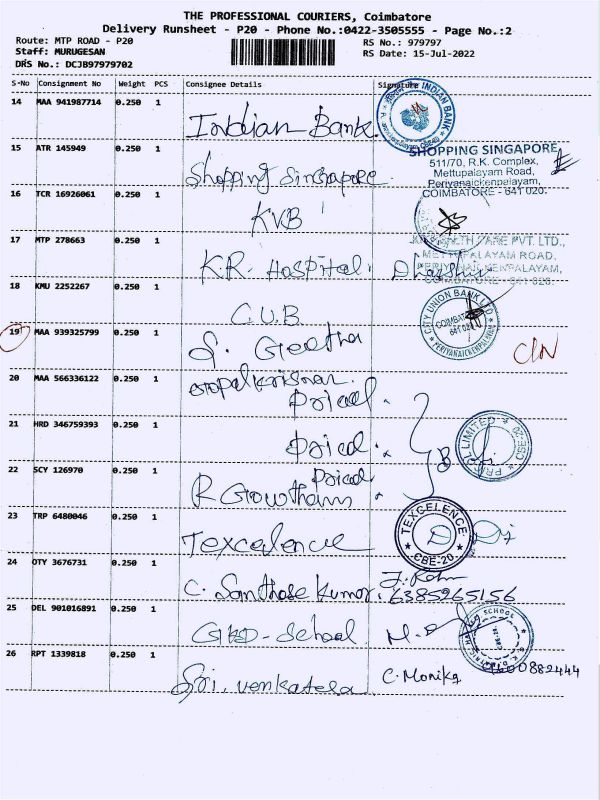 THE PROFESSIONAL COURIERS, Coimbatore
Delivery Runsheet - P20 - Phone No.:0422-3505555 - Page No.:2
Route: MTP ROAD - P20
RS No.: 979797
Staff: MURUGESAN
RS Date: 15-Jul-2022
DRS No.: DCJB97979702
S-No Consignment No Weight PCS Consignee Details Signature
14 MAA 941987714 0.250 1 Indian Bank.
INDIAN BANK
15 ATR 145949 0.250 1 Shopping Singapore
SHOPPING SINGAPORE
511/70, R.K. Complex,
Mettupalayam Road,
Periyanaickenpalayam,
COIMBATORE - 641 020.
16 TCR 16926061 0.250 1 KVB
17 MTP 278663 0.250 1 K.R. Hospital.
CARE PVT. LTD.,
METTUPALAYAM ROAD,
PERIYANAICKENPALAYAM,
COIMBATORE - 641 020.
18 KMU 2252267 0.250 1 C.U.B
CITY UNION BANK LTD
COIMBATORE
641 020
PERIYANAICKENPALAYAM
19 MAA 939325799 0.250 1 S. Geetha
20 MAA 566336122 0.250 1 Gopalkrisnan.
Pricol.
21 HRD 346759393 0.250 1 Pricol.
PRICOL LIMITED
CBE-20
22 SCY 126970 0.250 1 Pricol
R Gowtham
23 TRP 6480046 0.250 1 Texcelence
TEXCELENCE
CBE-20
24 OTY 3676731 0.250 1 C. Santhose Kumar. 6385265156
25 DEL 901016891 0.250 1 GKD-School
SCHOOL
26 RPT 1339818 0.250 1 Sri. Venkatela C. Monika 9600882444